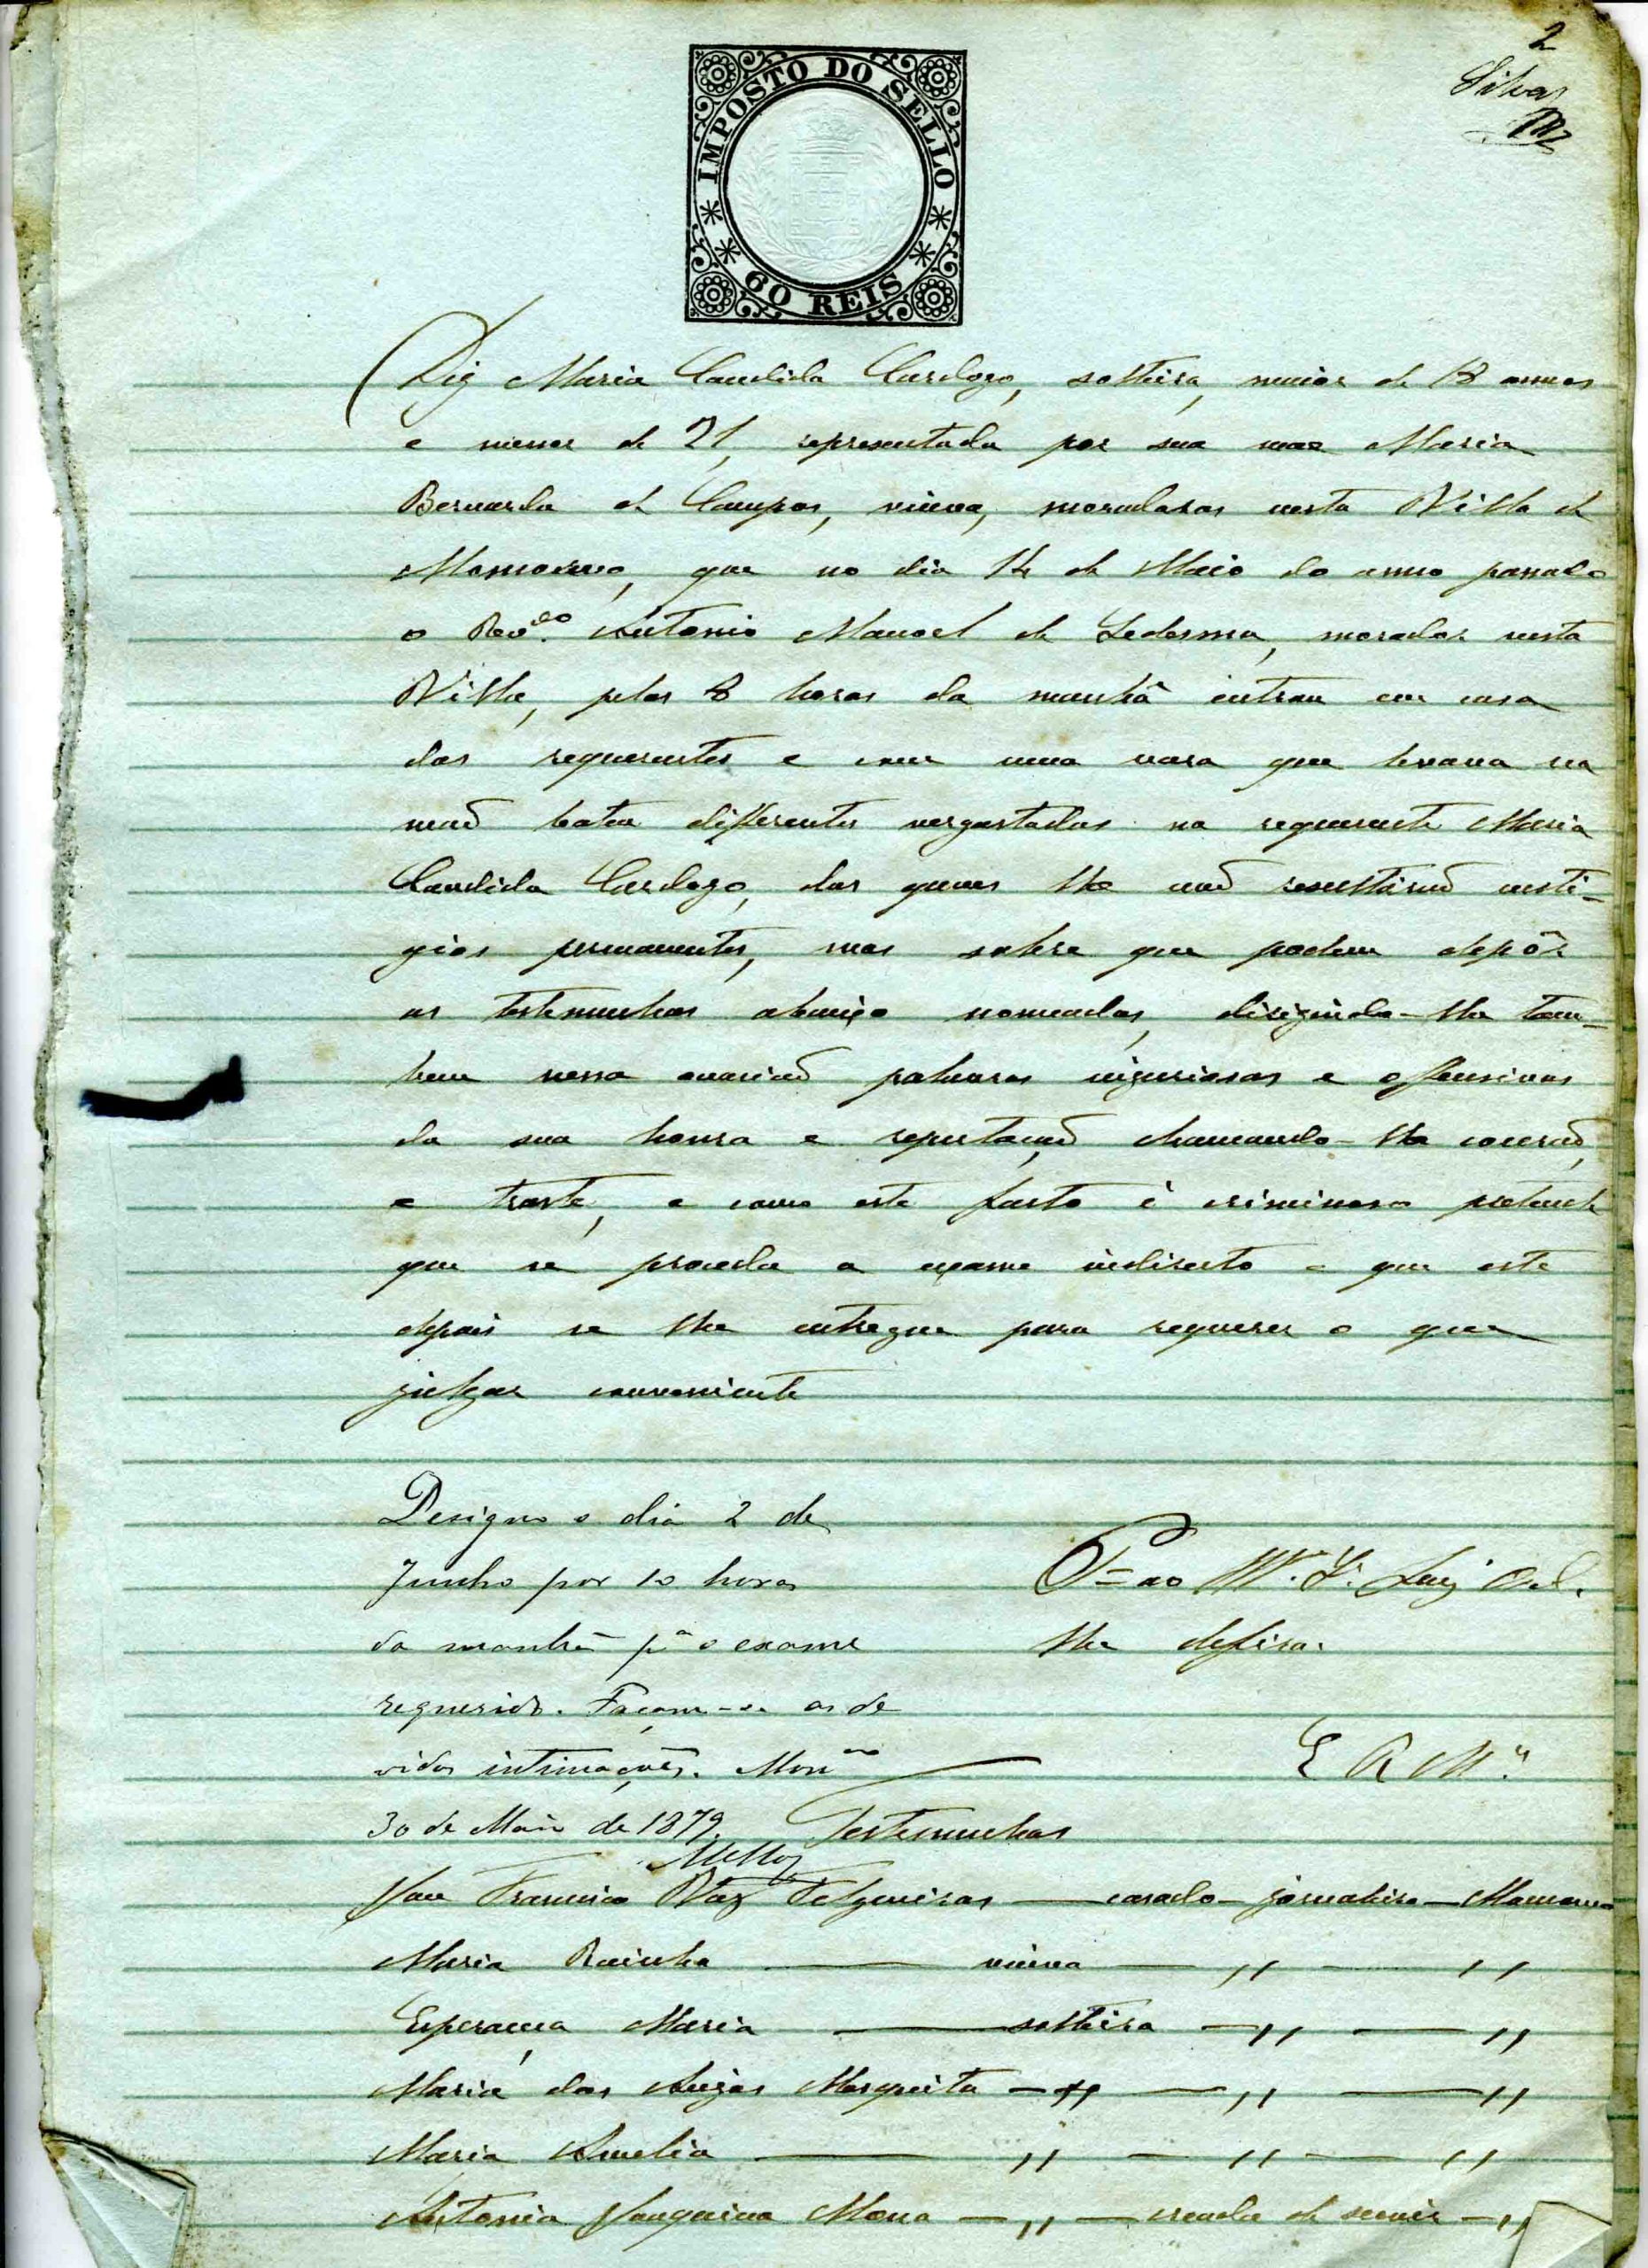 2
Silva
IMPOSTO DO SELLO
60 REIS
Diz Maria Candida Cardozo, solteira, maior de 18 annos
e menor de 21, representada por sua mae Maria
Bernarda de Campos, viuva, moradoras nesta Villa de
que no dia 14 de Maio do anno passado
o Rev.do Antonio Manoel de Ledesma, morador nesta
Villa, pelas 8 horas da manhã entrou em casa
das requerentes e com uma vara que levava na
maõ bateu differentes vergastadas na requerente Maria
Candida Cardozo, das quaes lhe naõ resultáraõ vesti-
gios permanentes, mas sobre que podem depôr
as testemunhas abaixo nomeadas, dirigindo-lhe tam-
bem nessa occasiaõ palavras injuriosas e offensivas
da sua honra e reputaçaõ, chamando-lhe
e traste, e como este facto é criminoso pretende
que se proceda a exame indirecto e que este
depois se lhe entregue para requerer o que
julgar conveniente
Designo o dia 2 de
Junho por 10 horas
da manhã p.a o exame
requerido. Façam-se as de
vidas intimações. Mon.co
30 de Maio de 1879.
Mello
P. ao M.to Snr. Juiz
lhe defira.
E R M.ce
Testemunhas
Francisco Vaz Felgueiras — casado — jornaleiro —
Maria Rainha — viuva — ,, — ,,
Esperança Maria — solteira — ,, — ,,
Maria dos Anjos Mesquita — ,, — ,, — ,,
Maria Amelia — ,, — ,, — ,,
Antonia Joaquina — ,, — creada de servir — ,,